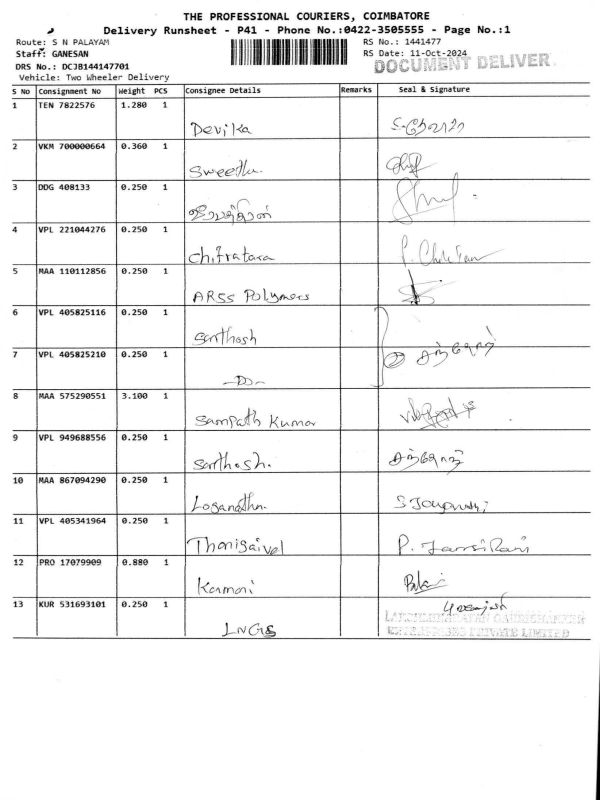 THE PROFESSIONAL COURIERS, COIMBATORE
Delivery Runsheet - P41 - Phone No.:0422-3505555 - Page No.:1
Route: S N PALAYAM RS No.: 1441477
Staff: GANESAN RS Date: 11-Oct-2024
DOCUMENT DELIVER
DRS No.: DCJB144147701
Vehicle: Two Wheeler Delivery
S No Consignment No Weight PCS Consignee Details Remarks Seal & Signature
1 TEN 7822576 1.280 1
Devika
2 VKM 700000664 0.360 1
Sweetha
3 DDG 408133 0.250 1
4 VPL 221044276 0.250 1
Chitratara
5 MAA 110112856 0.250 1
ARSS Polymers
6 VPL 405825116 0.250 1
Santhosh
7 VPL 405825210 0.250 1
—D—
8 MAA 575290551 3.100 1
Sampath Kumar
9 VPL 949688556 0.250 1
Santhosh. சந்தோஷ்
10 MAA 867094290 0.250 1
Loganathn
11 VPL 405341964 0.250 1
Thanigaivel P. JansiRani
12 PRO 17079909 0.880 1
Kamani
13 KUR 531693101 0.250 1
LNGS
PRIVATE LIMITED